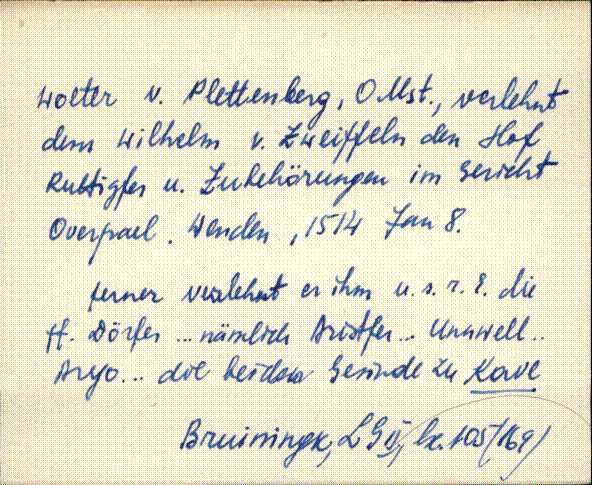 Wolter v. Plettenberg, O.Mst., verlehnt
dem Wilhelm v. Zweiffeln den Hof
Ruttigfer u. Zubehörungen im Gericht
Overpael. Wenden, 1514 Jan 8.
ferner verlehnt er ihm u. s. r. E. die
ff. Dörfer ... nämlich Aristfer... Unnwell..
Aryo... die beiden Gesinde zu Kawe
Bruiningk, LG II, lk. 105 (169)